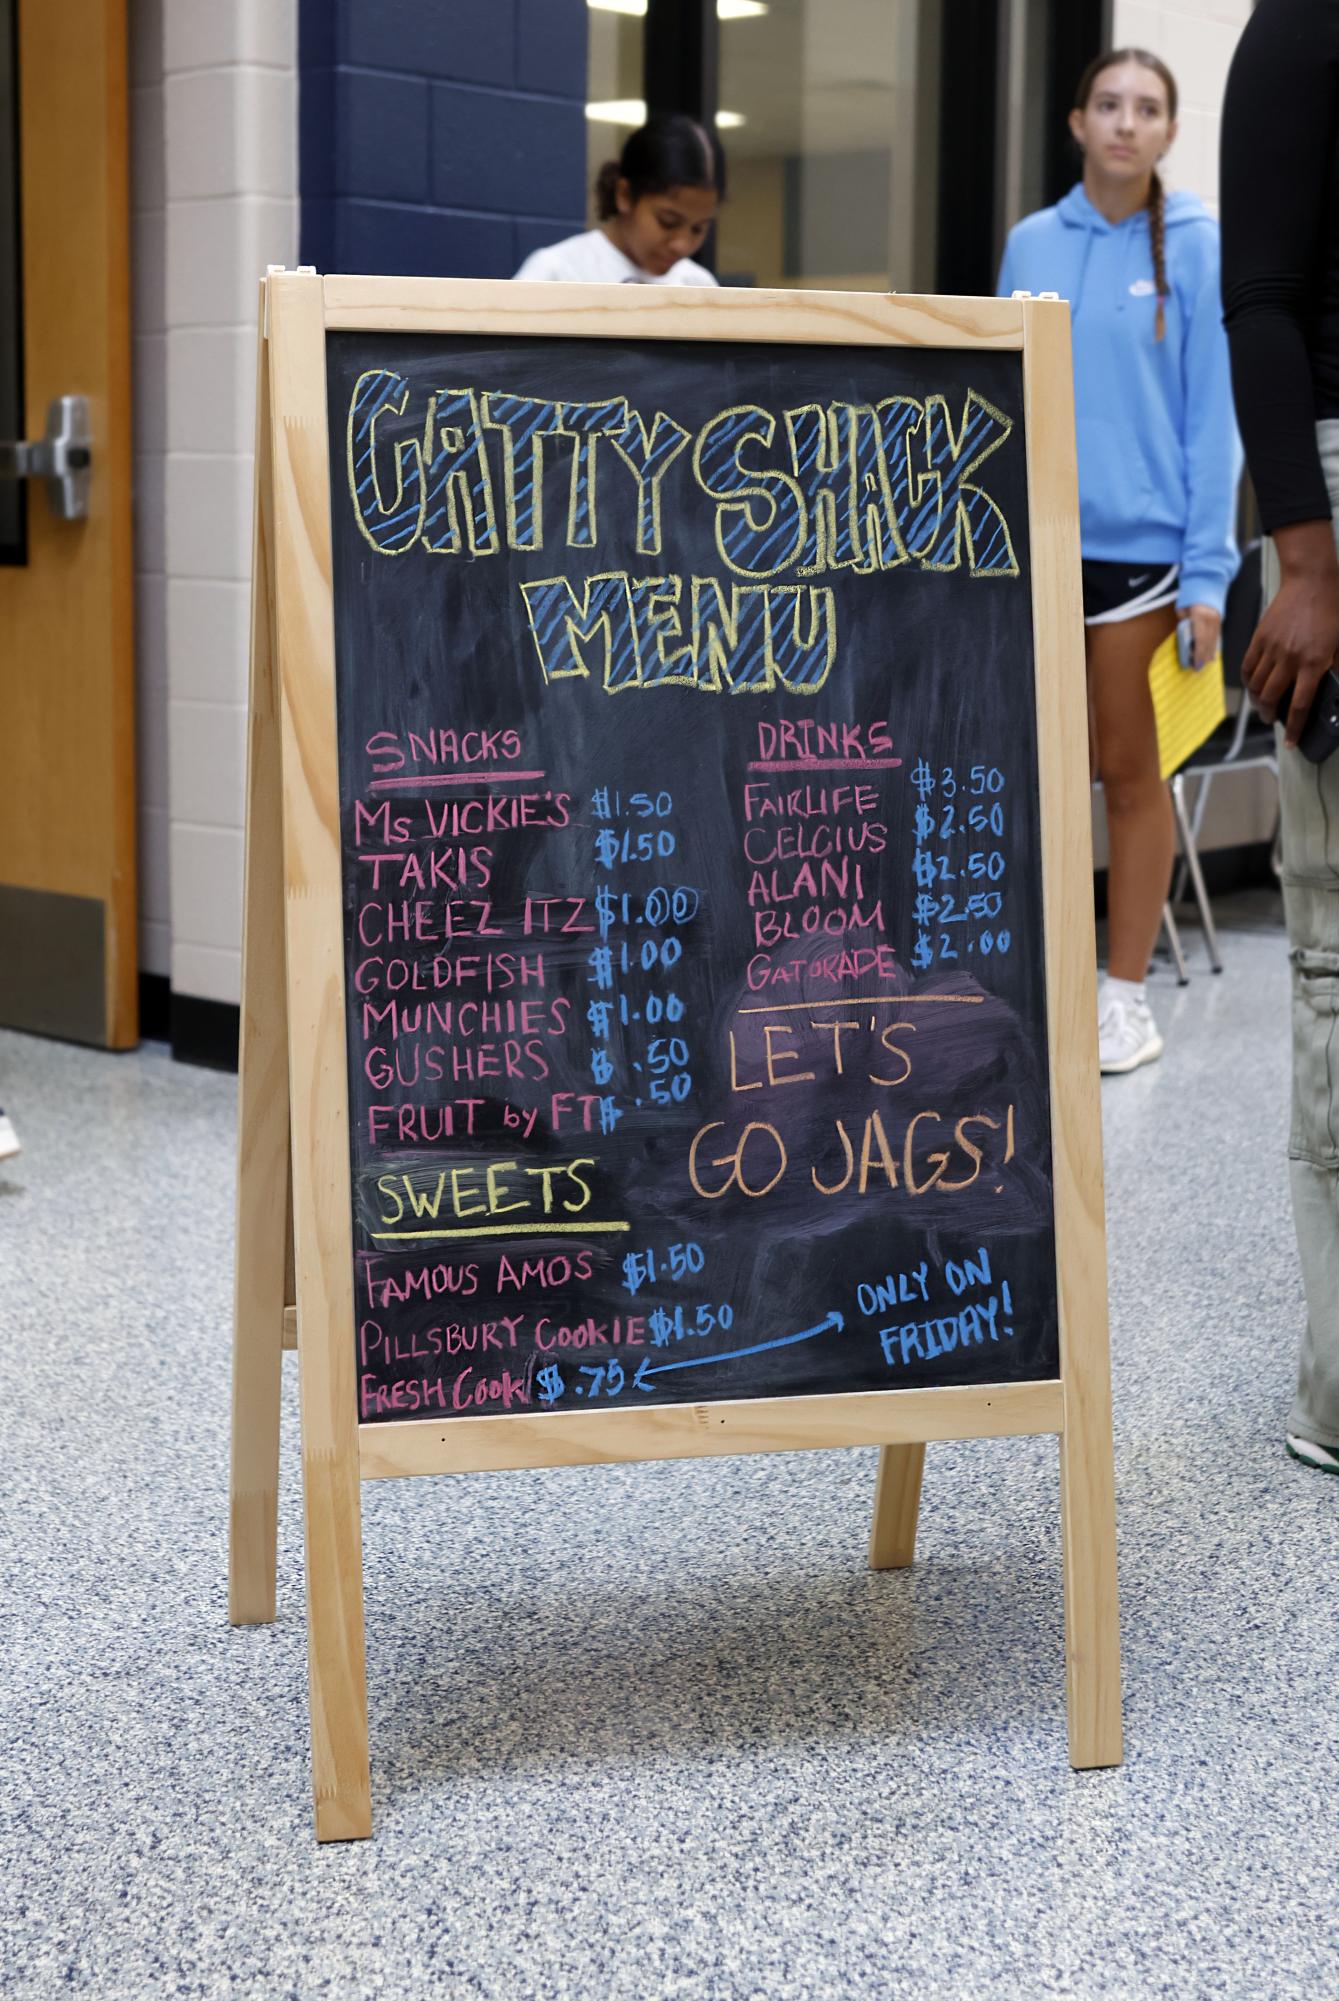 CATTY SHACK
MENU
SNACKS
Ms VICKIE'S $1.50
TAKIS $1.50
CHEEZ ITZ $1.00
GOLDFISH $1.00
MUNCHIES $1.00
GUSHERS $ .50
FRUIT by FT $ .50
SWEETS
FAMOUS AMOS $1.50
PILLSBURY COOKIE $1.50
FRESH Cook $ .75
DRINKS
FAIRLIFE $3.50
CELCIUS $2.50
ALANI $2.50
BLOOM $2.50
GATORADE $2.00
LET'S
GO JAGS!
ONLY ON
FRIDAY!